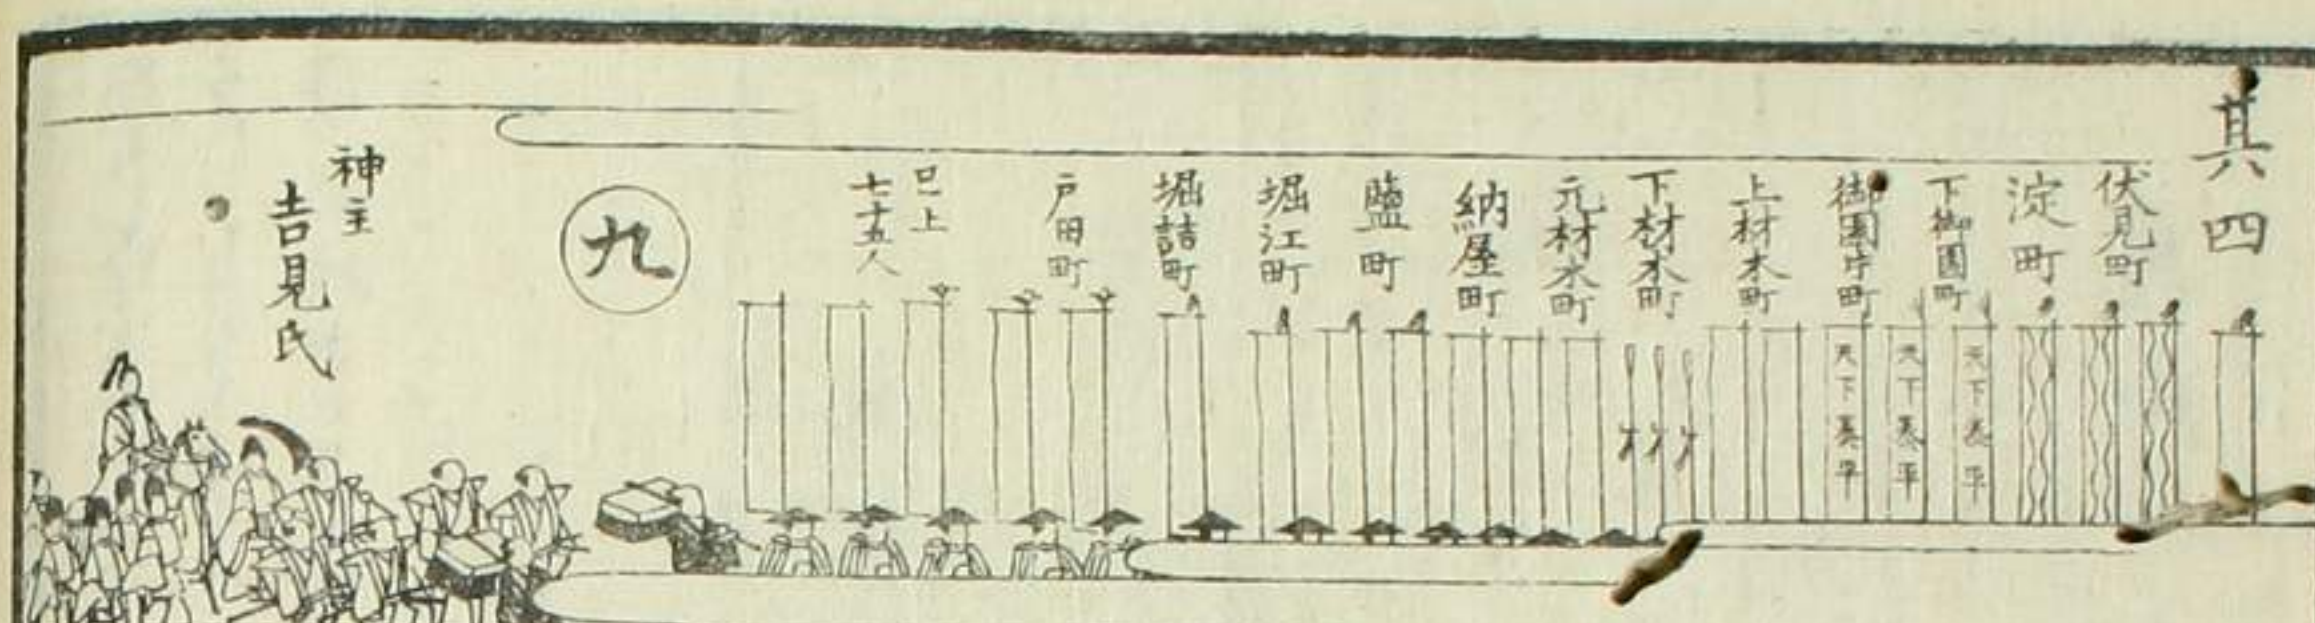 其四
伏見町
淀町
下御園町
御園片町
上材木町
下材木町
元材木町
納屋町
鹽町
堀江町
堀詰町
戸田町
巳上
七十五人
天下泰平
天下泰平
天下泰平
九
神主
吉見氏